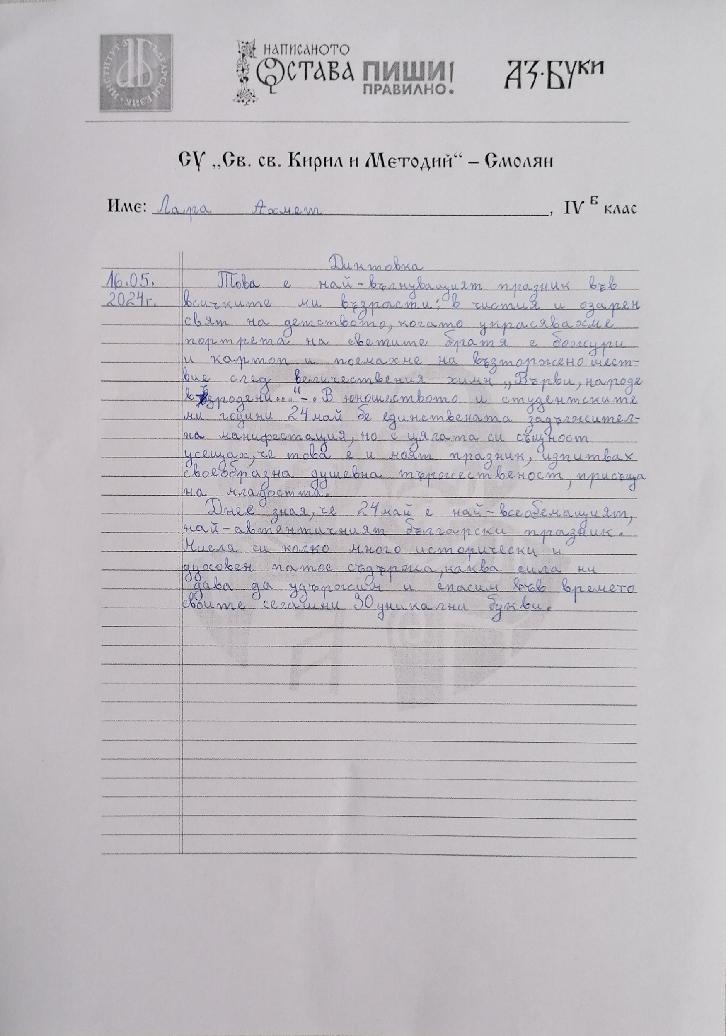 ИНСТИТУТ ЗА БЪЛГАРСКИ ЕЗИК
НАПИСАНОТО
ОСТАВА ПИШИ
ПРАВИЛНО!
АЗ·БУКИ
СУ „Св. св. Кирил и Методий“ – Смолян
Име: Лара Ахмет, IV Б клас
Диктовка
16.05. Това е най-вълнуващият празник във
2024г. всичките ми възрасти: в чистия и озарен
свят на детството, когато украсявахме
портрета на светите братя с божури
и картон и поемахме на възторжено шест-
вие след величествения химн „Върви, народе
възродени...“-. В юношеството и студентските
ми години 24 май бе единствената задължител-
на манифестация, но с цялата си същност
усещах, че това е и моят празник, изпитвах
своеобразна душевна тържественост, присъща
на младостта.
Днес зная, че 24 май е най-всеобемащият,
най-автентичният български празник.
Мисля си колко много исторически и
духовен патос съдържа, каква сила ни
дава да удържим и спасим във времето
своите сегашни 30 уникални букви.